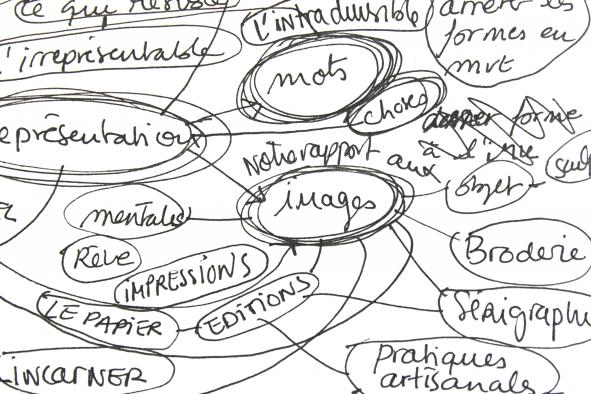 ce qui résiste
L'intraduisible
arrêter les
formes en
mvt
L'irreprésentable
mots
choses
eprésentation
donner forme
à l'inx
Notre rapport aux
sculp
objet
images
mentales
Rêve
Broderie
IMPRESSIONS
EDITIONS
LE PAPIER
Sérigraphi
INCARNER
pratiques
artisanales